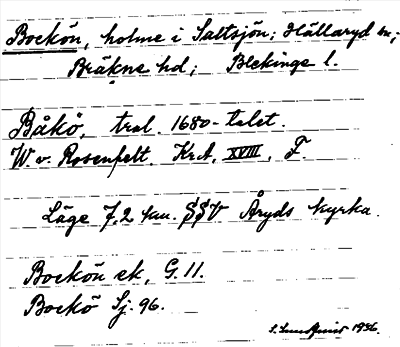 Bockön, holme i Saltsjön; Hällaryd sn;
Bräkne hd; Blekinge l.
Båkö, trol. 1680-talet.
W. v. Rosenfelt. Krit. XVIII, F.
Läge 7,2 km. SSV Åryds kyrka.
Bockön ek, G. 11.
Bockö Sj. 96.
1936.